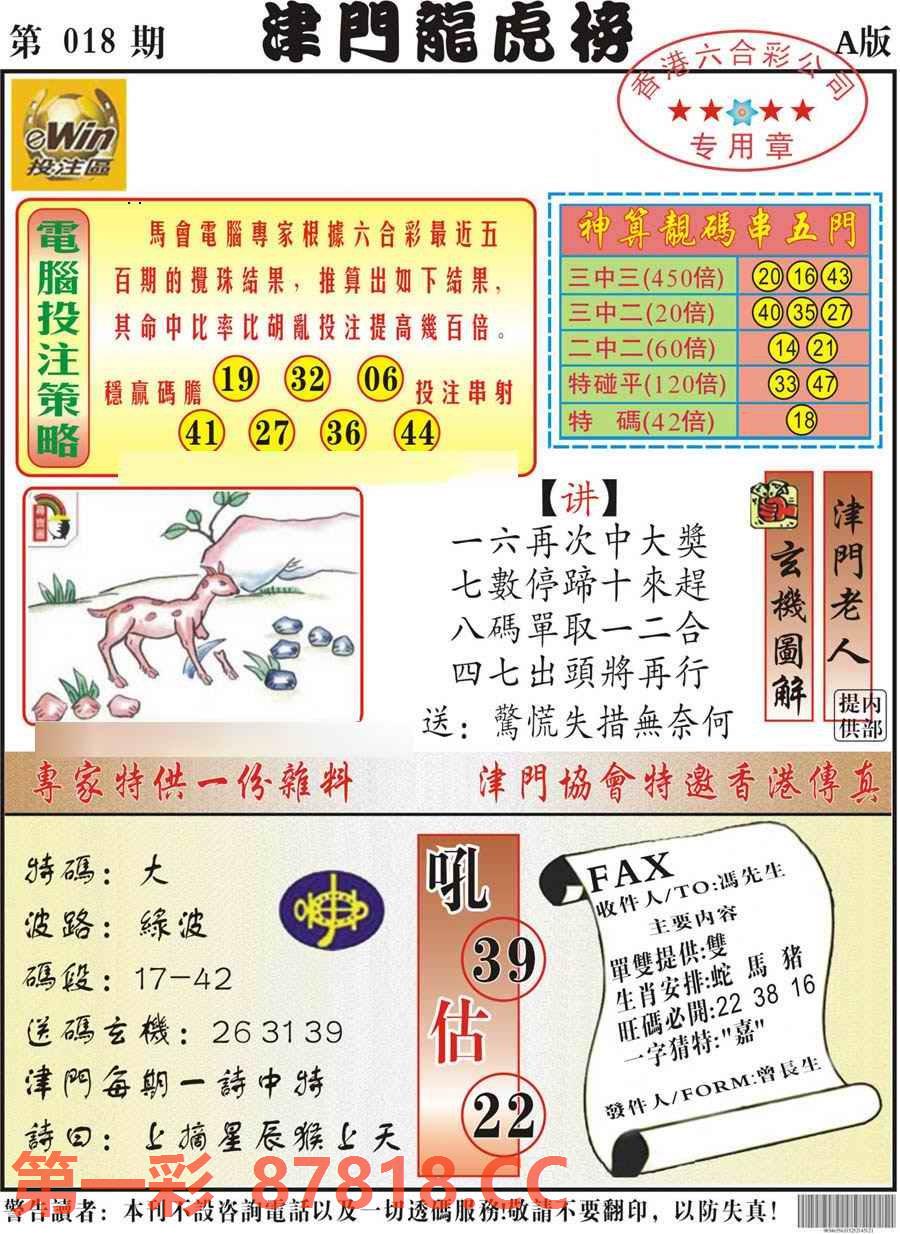 第 018 期
津門龍虎榜
A版
香港六合彩公司
专用章
eWin
投注區
電腦投注策略
馬會電腦專家根據六合彩最近五
百期的攪珠結果，推算出如下結果，
其命中比率比胡亂投注提高幾百倍。
穩贏碼膽 19 32 06 投注串射
41 27 36 44
神算靚碼串五門
三中三(450倍) 20 16 43
三中二(20倍) 40 35 27
二中二(60倍) 14 21
特碰平(120倍) 33 47
特 碼(42倍) 18
尋寶圖
【讲】
一六再次中大獎
七數停蹄十來趕
八碼單取一二合
四七出頭將再行
送：驚慌失措無奈何
玄機圖解
津門老人
内部提供
專家特供一份雜料
津門協會特邀香港傳真
特碼：大
波路：綠波
碼段：17-42
送碼玄機：26 31 39
津門每期一詩中特
詩曰：上摘星辰猴上天
吼
39
估
22
FAX
收件人/TO:馮先生
主要内容
單雙提供:雙
生肖安排:蛇 馬 猪
旺碼必開:22 38 16
一字猜特:"嘉"
發件人/FORM:曾長生
第一彩 87818.CC
警告讀者：本刊不設咨詢電話以及一切透碼服務!敬請不要翻印，以防失真！